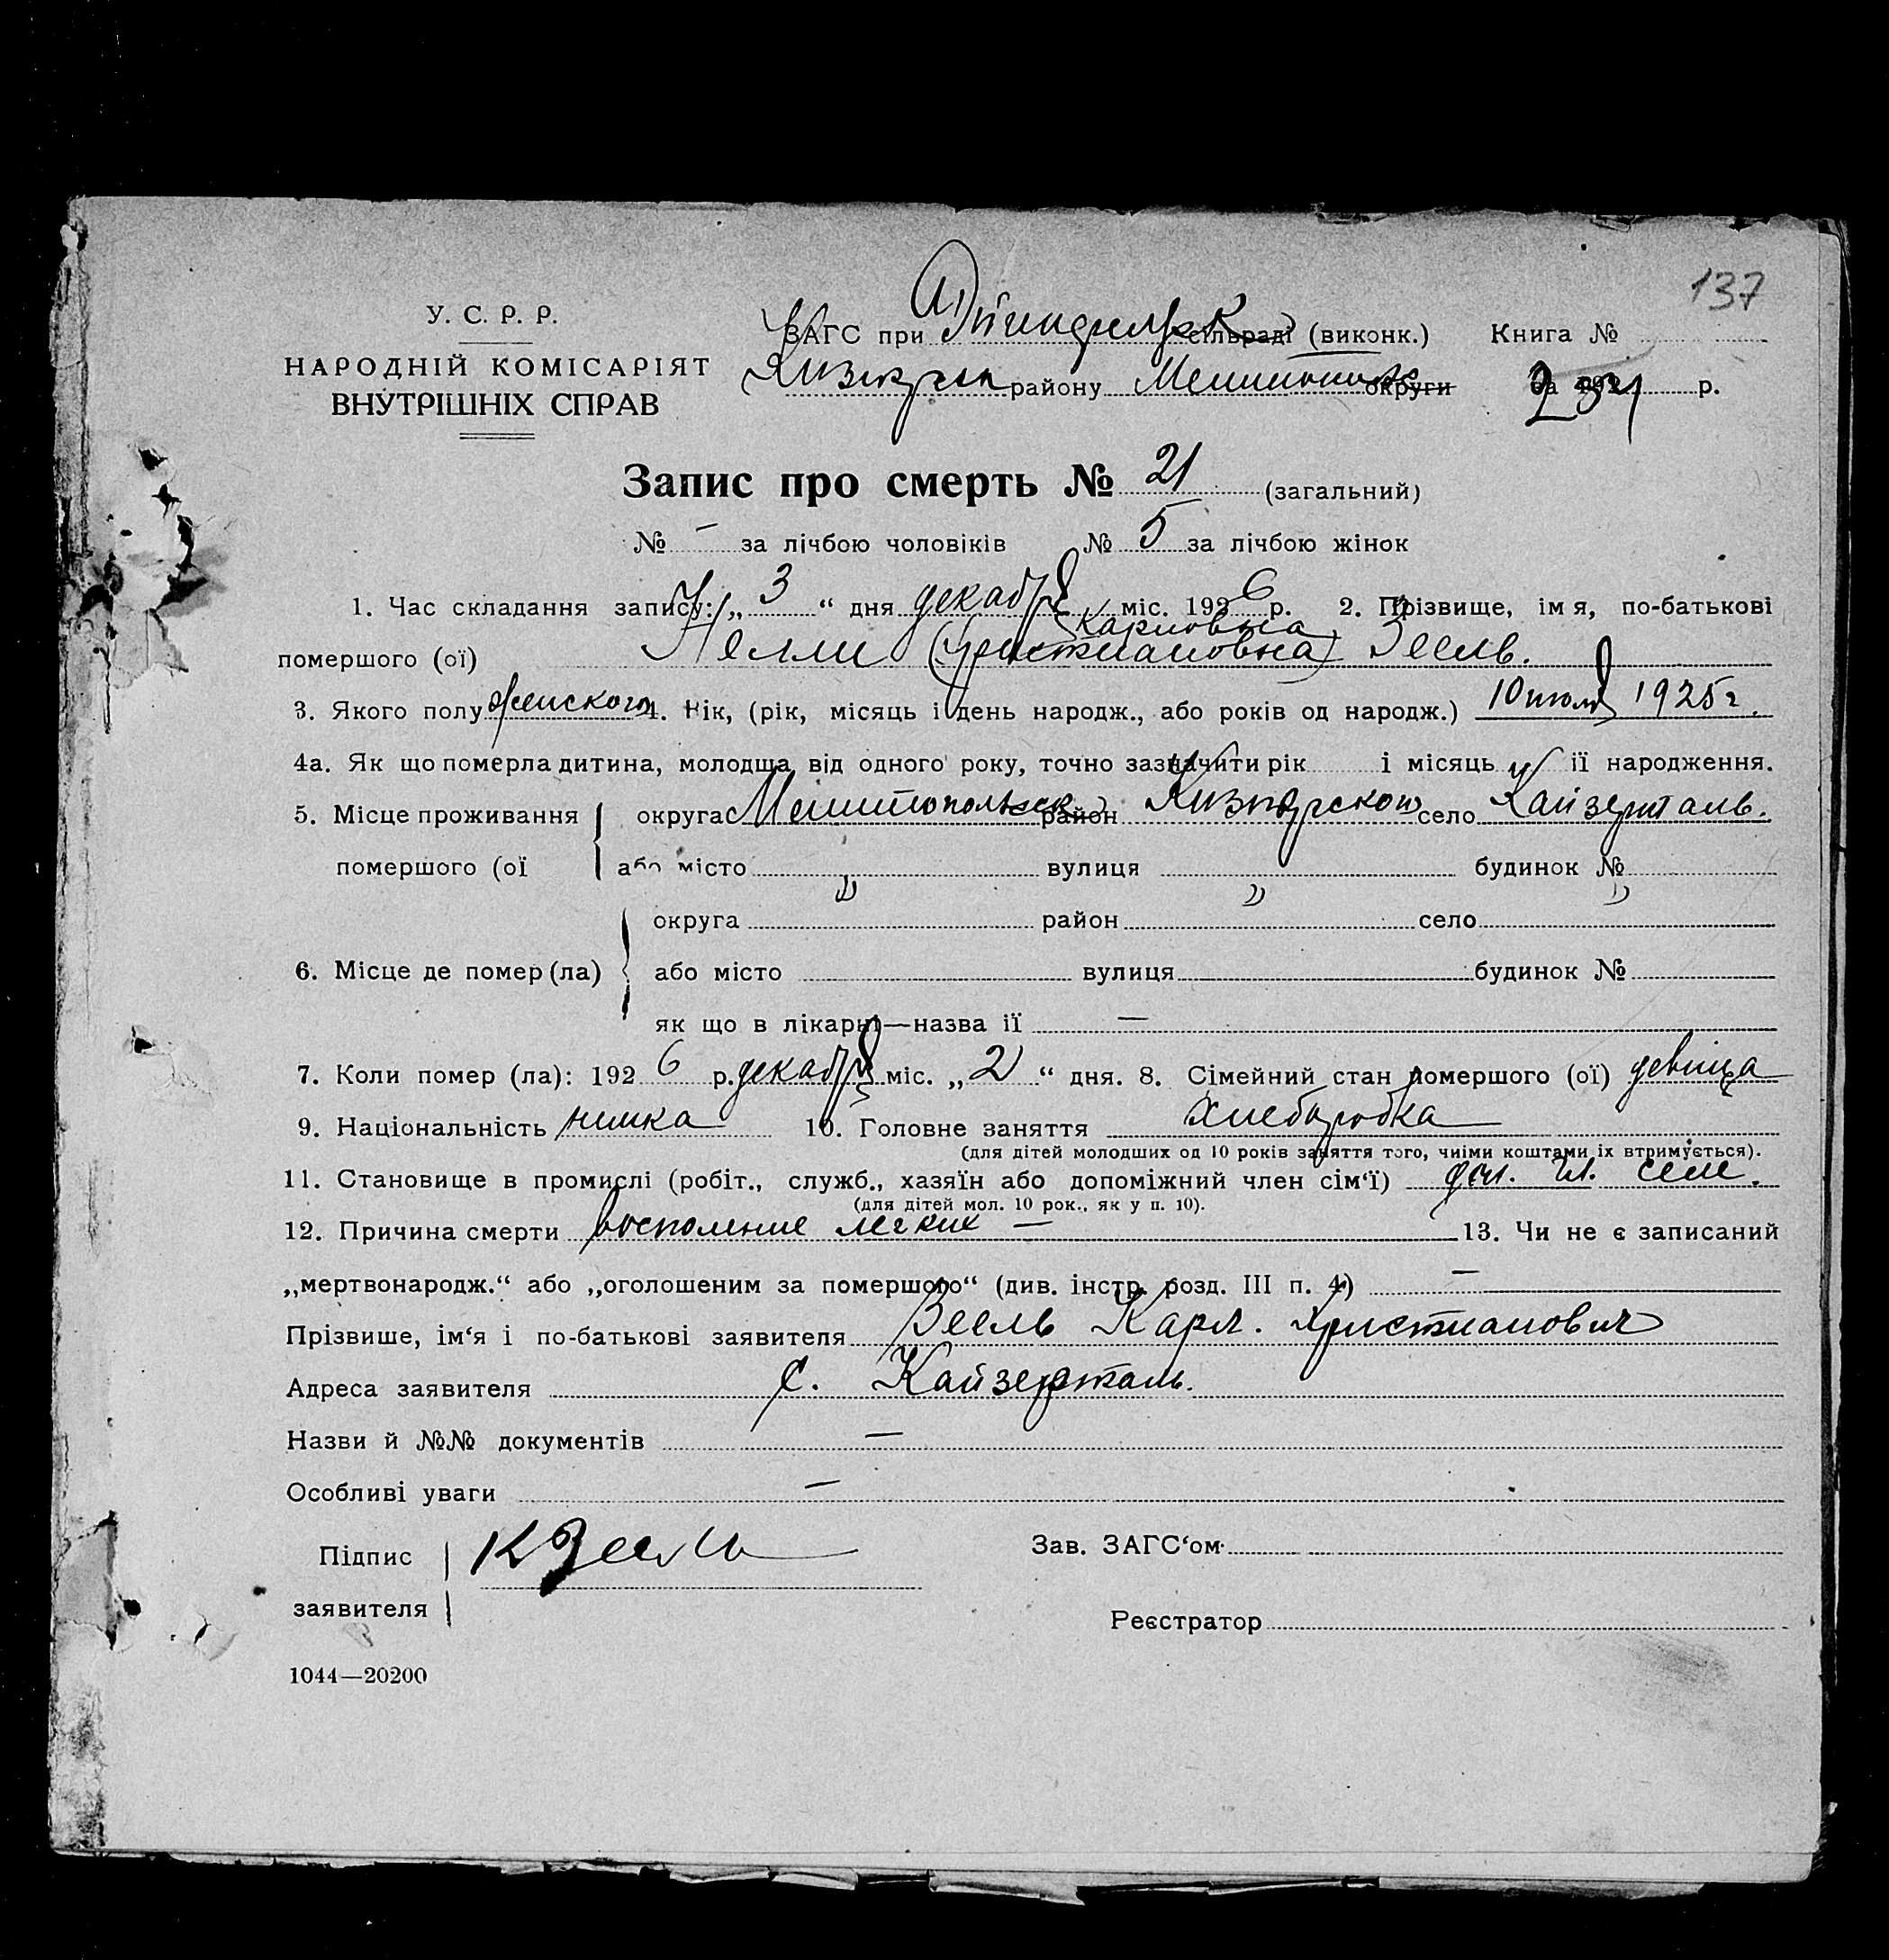 137
У. С. Р. Р.
НАРОДНІЙ КОМІСАРІЯТ
ВНУТРІШНІХ СПРАВ
ЗАГС при сільраді (виконк.) Книга №
району округи за 192 р.
Запис про смерть № 21 (загальний)
№ – за лічбою чоловіків № 5 за лічбою жінок
1. Час складання запису: „ 3 “ дня декабря міс. 1926 р. 2. Прізвище, імя, по-батькові
Карловна
помершого (ої) Нелли (Христиановна) Зеель.
3. Якого полу женского 4. Рік, (рік, місяць і день народж., або років од народж.) 10 июля 1925 г.
4а. Як що померла дитина, молодша від одного року, точно зазначити рік і місяць її народження.
5. Місце проживання округа Мелитопольск район село Кайзерталь.
помершого (ої або місто вулиця будинок №
округа " район " село "
6. Місце де помер (ла) або місто вулиця будинок №
як що в лікарні—назва її —
7. Коли помер (ла): 1926 р. декабря міс. „ 2 “ дня. 8. Сімейний стан помершого (ої) девица
9. Національність немка 10. Головне заняття хлеборобка
(для дітей молодших од 10 років заняття того, чиїми коштами їх втримується).
11. Становище в промислі (робіт., служб., хазяїн або допоміжний член сім‘ї) чл. семе.
(для дітей мол. 10 рок., як у п. 10).
12. Причина смерти восполение легких — 13. Чи не є записаний
„мертвонародж.“ або „оголошеним за помершого“ (див. інстр. розд. III п. 4) —
Прізвише, ім‘я і по-батькові заявителя Зеель Карл. Христианович
Адреса заявителя с. Кайзерталь.
Назви й №№ документів —
Особливі уваги —
Підпис К Зеель Зав. ЗАГС‘ом
заявителя Реєстратор
1044—20200